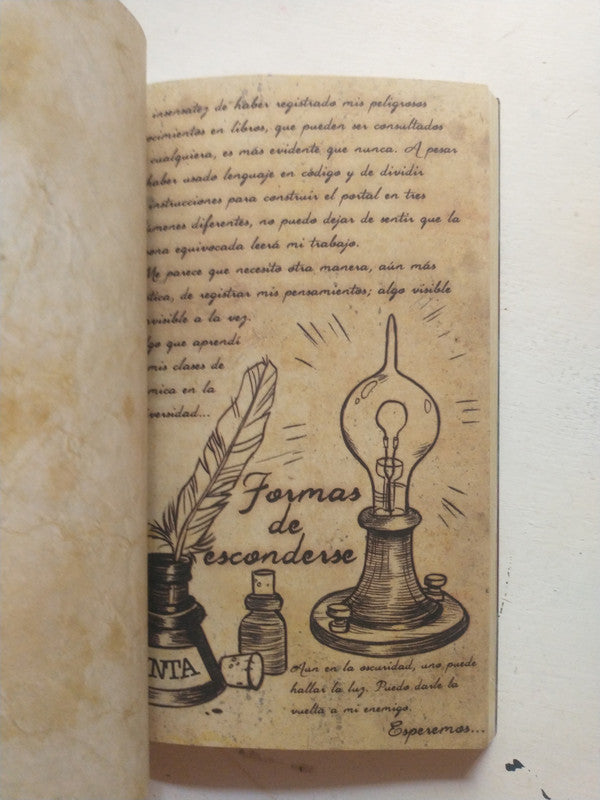 insensatez de haber registrado mis peligrosos
ocimientos en libros, que pueden ser consultados
cualquiera, es más evidente que nunca. A pesar
haber usado lenguaje en código y de dividir
instrucciones para construir el portal en tres
úmenes diferentes, no puedo dejar de sentir que la
sona equivocada leerá mi trabajo.
Me parece que necesito otra manera, aún más
ptica, de registrar mis pensamientos; algo visible
nvisible a la vez.
lgo que aprendí
mis clases de
mica en la
versidad...
Formas
de
esconderse
NTA
Aun en la oscuridad, uno puede
hallar la luz. Puedo darle la
vuelta a mi enemigo.
Esperemos...